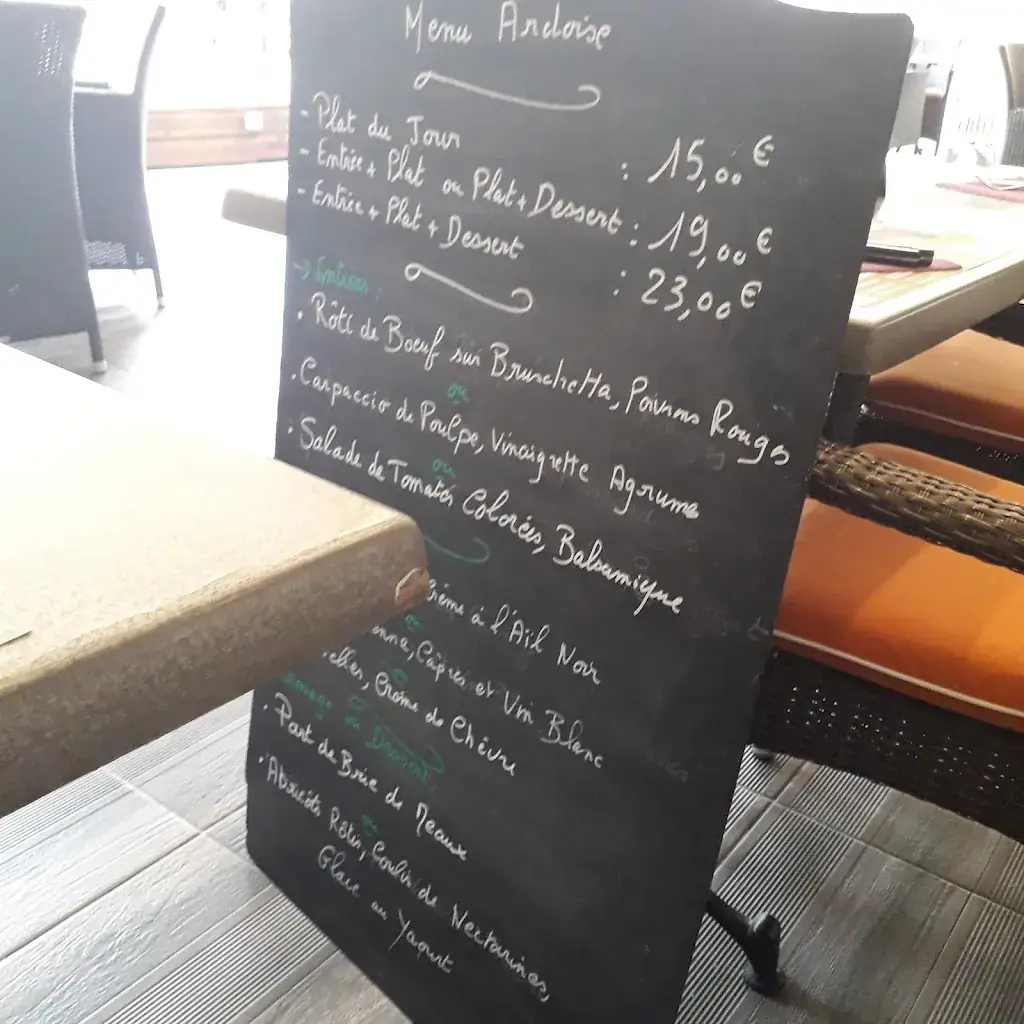 Menu Ardoise
- Plat du Jour : 15,00 €
- Entrée + Plat ou Plat + Dessert : 19,00 €
- Entrée + Plat + Dessert : 23,00 €
→ Entrées :
• Rôti de Boeuf sur Bruschetta, Poivrons Rouges
ou
• Carpaccio de Poulpe, Vinaigrette Agrume
ou
• Salade de Tomates Colorées, Balsamique
à l'Ail Noir
Câpres et Vin Blanc
Crème de Chèvre
ou Dessert
• Part de Brie de Meaux
ou
• Abricots Rôtis, Coulis de Nectarines,
Glace au Yaourt